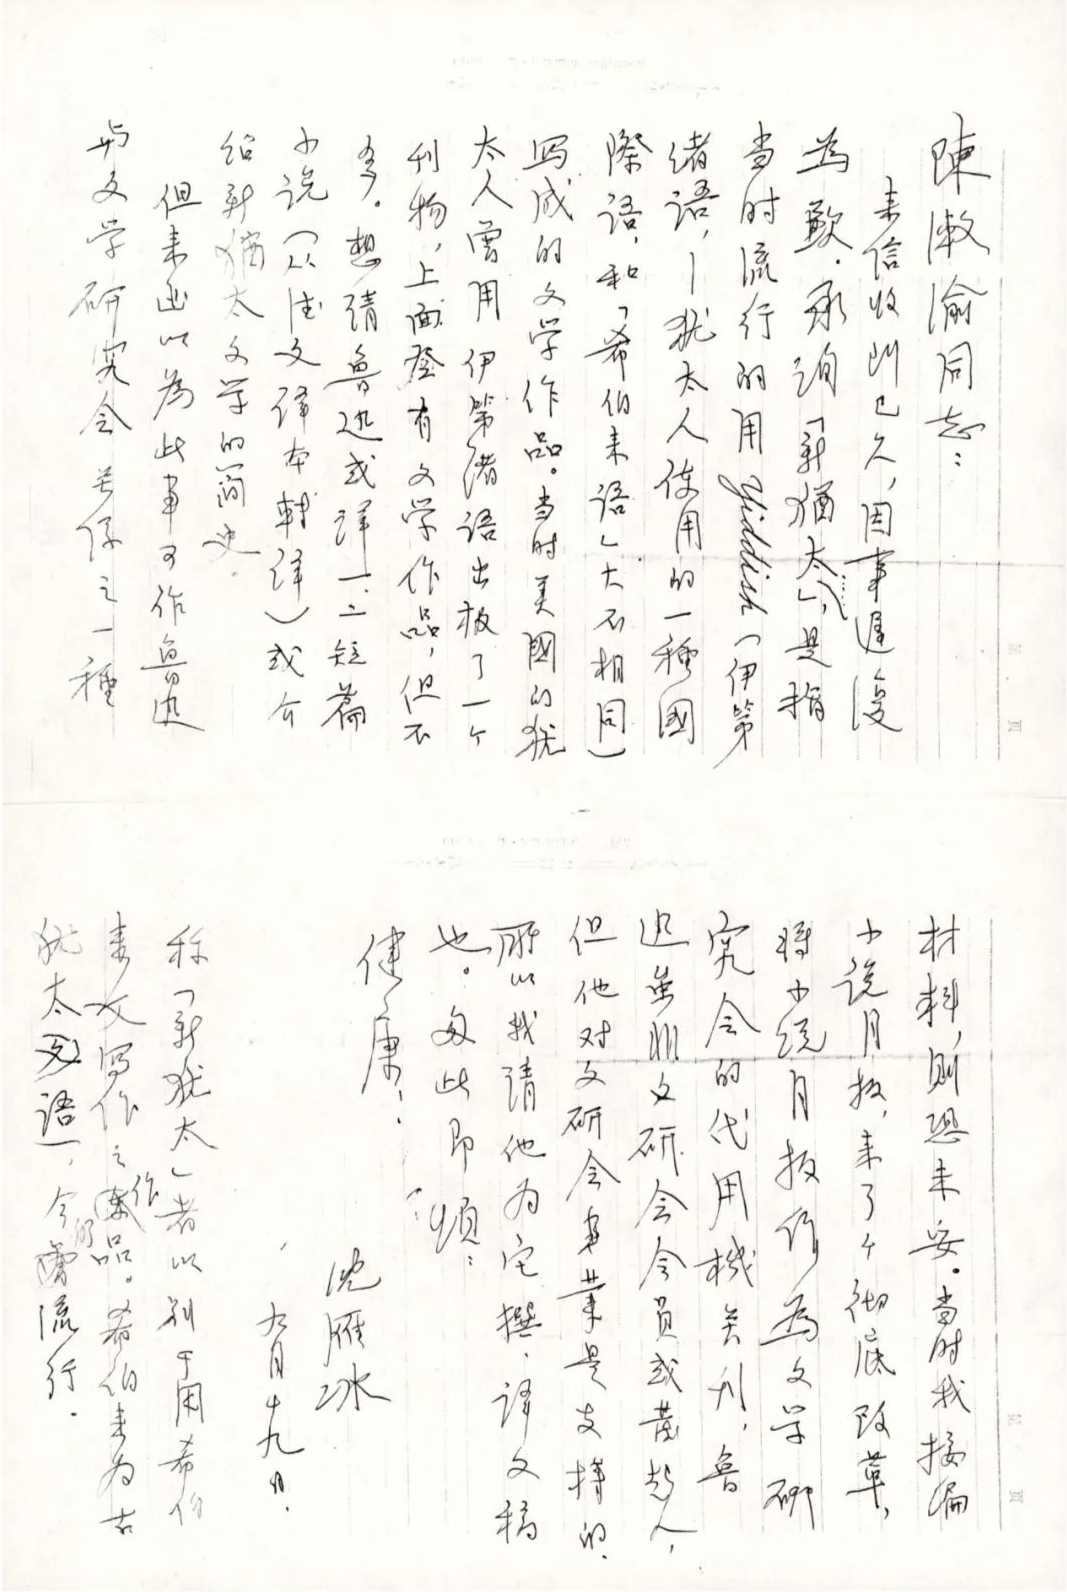 陳漱渝同志：
来信收到已久，因事遲復
為歉。承詢「新猶太」，是指
当时流行的用Yiddish（伊第
绪语，—犹太人使用的一種國
際语，和「希伯来语」大不相同）
写成的文学作品。当时美國的犹
太人曾用伊第绪语出版了一个
刊物，上面登有文学作品，但不
多。想請鲁迅或译一、二短篇
小说（从德文译本转译）或介
绍新猶太文学的简史。
但来函以為此事可作鲁迅
与文学研究会关係之一種
材料，则恐未妥。当时我接编
小说月报，来了个彻底改革，
将小说月报作為文学研
究会的代用機关刊，鲁
迅虽非文研会会员或发起人，
但他对文研会事業是支持的，
所以我請他为它撰、译文稿
也。匆此即頌：
健康！
沈雁冰
九月十九日.
称「新犹太」者以别于用希伯
来文写作之作品。希伯来为古
犹太语，今仍流行.